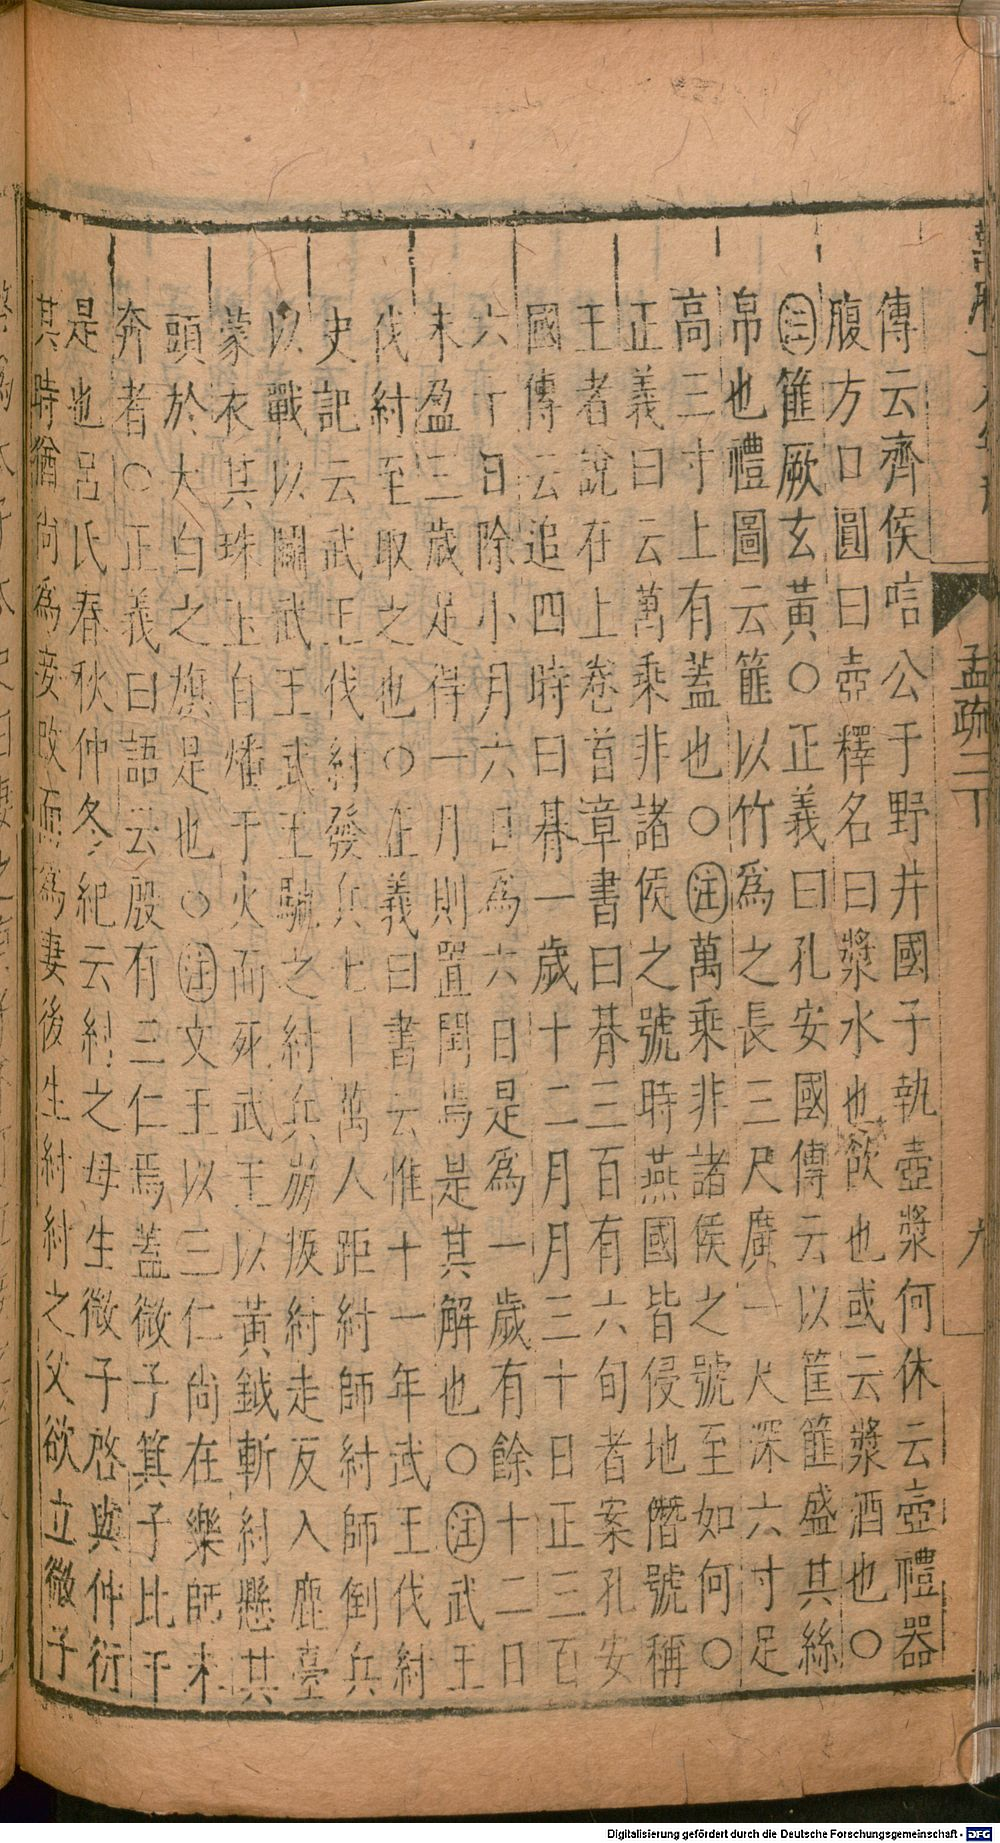 傳云齊侯唁公于野井國子執壺漿何休云壺禮器
腹方口圓曰壺釋名曰漿水也飲也或云漿酒也○
㊟篚厥玄黃○正義曰孔安國傳云以筐篚盛其絲
帛也禮圖云篚以竹爲之長三尺廣一尺深六寸足
高三寸上有蓋也○㊟萬乘非諸侯之號至如何○
正義曰云萬乘非諸侯之號時燕國皆侵地僭號稱
王者說在上卷首章書曰朞三百有六旬者案孔安
國傳云追四時曰朞一歲十二月月三十日正三百
六十日除小月六日爲六日是爲一歲有餘十二日
未盈三歲足得一月則置閏焉是其解也○㊟武王
伐紂至取之也○正義曰書云惟十一年武王伐紂
史記云武王伐紂發兵七十萬人距紂師紂師倒兵
以戰以開武王武王馳之紂兵崩叛紂走反入鹿臺
蒙衣其珠玉自燔于火而死武王以黃鉞斬紂懸其
頭於大白之旗是也○㊟文王以三仁尚在樂師未
奔者○正義曰語云殷有三仁焉蓋微子箕子比干
是也呂氏春秋仲冬紀云紂之母生微子啓與仲衍
其時猶尚爲妾改而爲妻後生紂紂之父欲立微子
孟疏二下
九
Digitalisierung gefördert durch die Deutsche Forschungsgemeinschaft - DFG